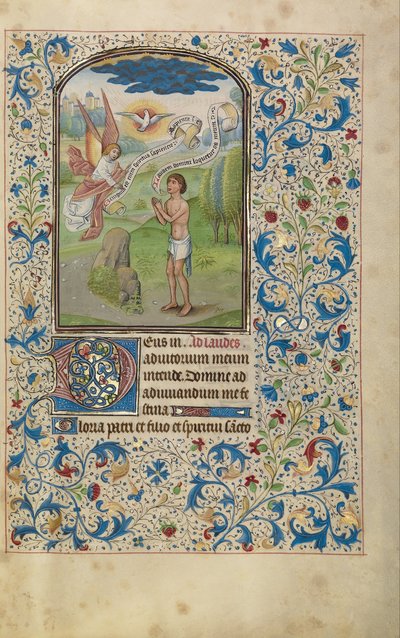 laudem domini loquetur os
Deus in. Ad laudes
adiutorium meum
intende. Domine ad
adiuuandum me fe
stina
Gloria patri et filio et spiritui sancto